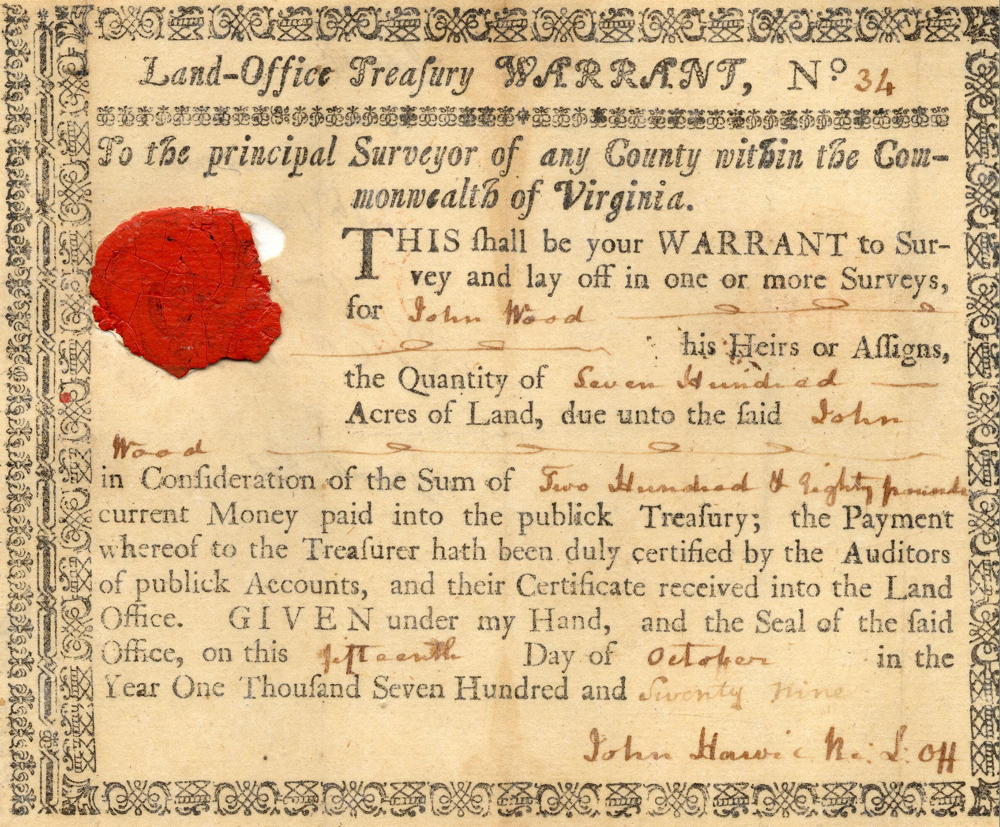 Land-Office Treaſury WARRANT, Nº 34
To the principal Surveyor of any County within the Com-
monwealth of Virginia.
THIS ſhall be your WARRANT to Sur-
vey and lay off in one or more Surveys,
for John Wood
his Heirs or Aſſigns,
the Quantity of Seven Hundred
Acres of Land, due unto the ſaid John
Wood
in Conſideration of the Sum of Two Hundred & Eighty pounds
current Money paid into the publick Treaſury; the Payment
whereof to the Treaſurer hath been duly certified by the Auditors
of publick Accounts, and their Certificate received into the Land
Office. GIVEN under my Hand, and the Seal of the ſaid
Office, on this fifteenth Day of October in the
Year One Thouſand Seven Hundred and Swenty nine
John L. Off